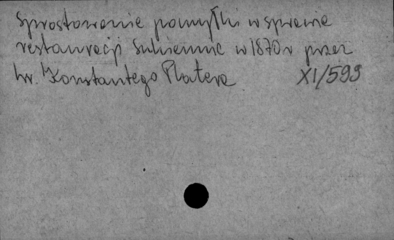 Sprostowanie pomyłki w sprawie
restauracji Sukiennic w 1870 r przez
hr. Konstantego Platera XI/599